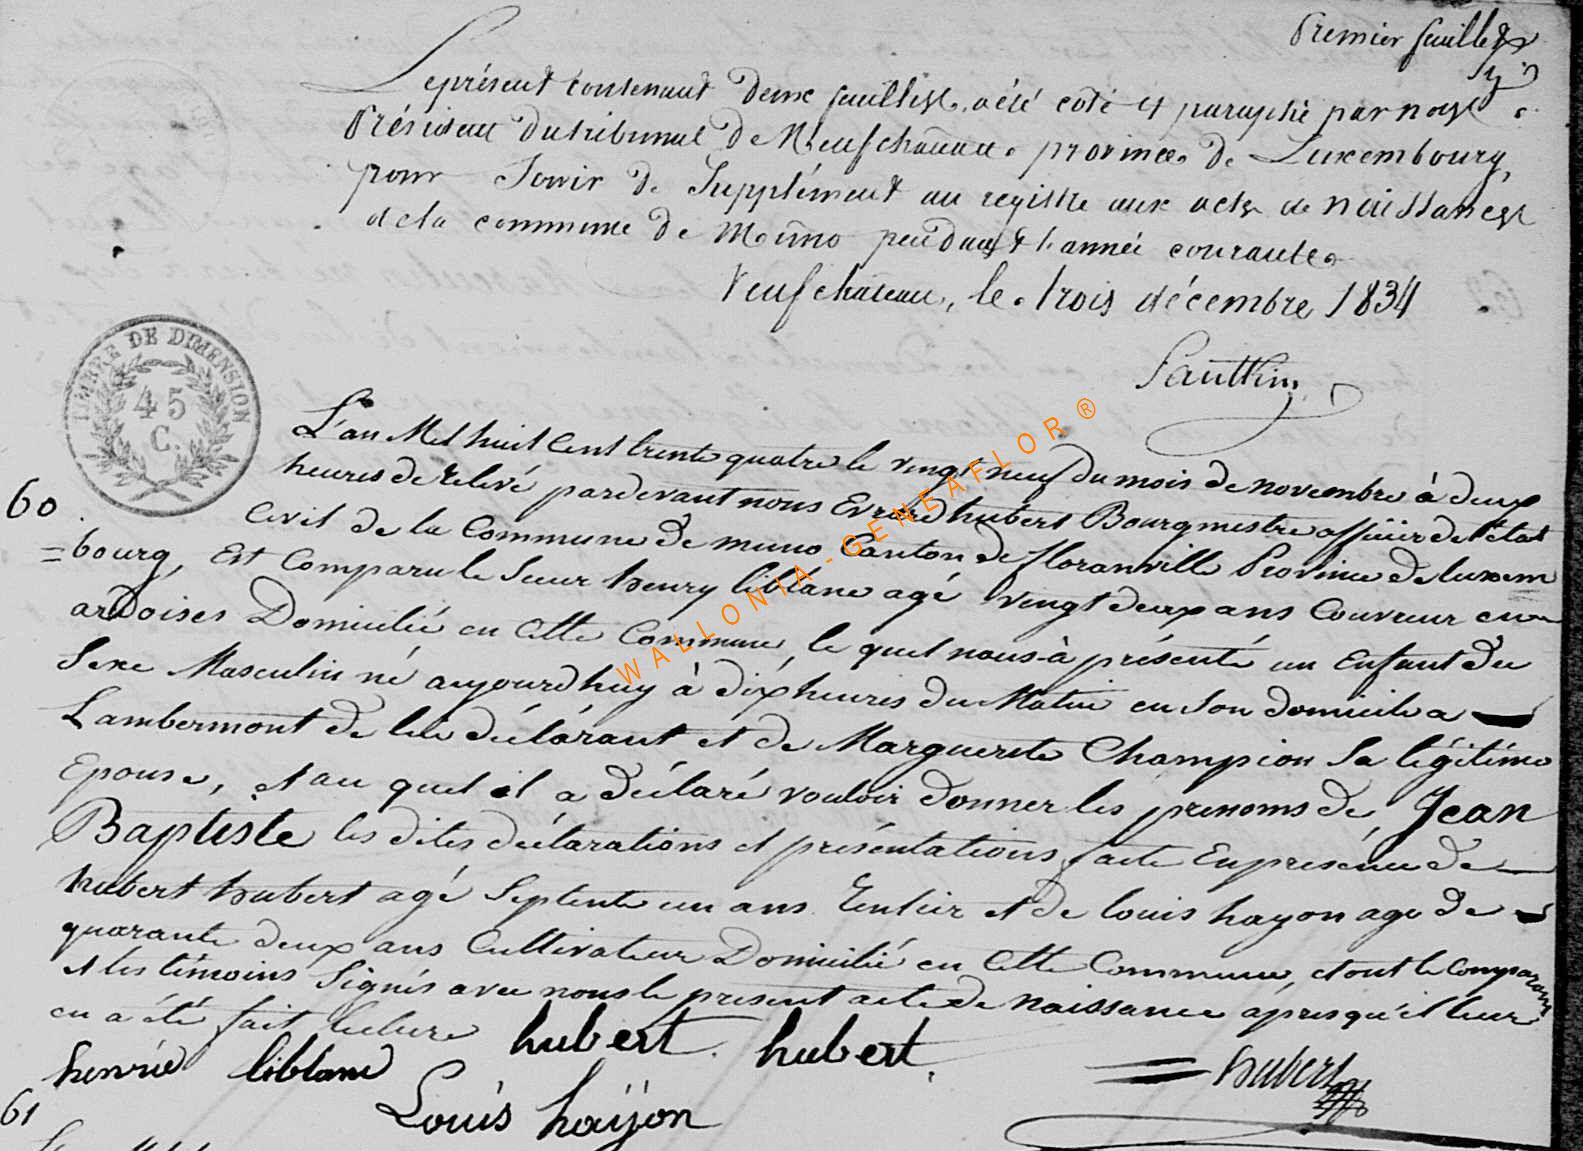 Premier feuillet
Le présent contenant deux feuillets, a été coté et paraphé par nous
Président du tribunal de Neufchateau province de Luxembourg,
pour servir de Supplément au registre aux actes de naissances
de la commune de Muno pendant l'année courante
Neufchateau, le trois décembre 1834
TIMBRE DE DIMENSION
45
C.
L'an Mil huit Cent trente quatre le vingt neuf du mois de novembre à deux
heures de relevé pardevant nous Evrard hubert Bourgmestre officier de l'état
60
Civil de la Commune de muno Canton de floranville Province de luxem
=bourg, Est Comparu le Sieur henry liblanc agé vingt deux ans Couvreur en
ardoises Domicilié en Cette Commune, le quel nous à présenté un Enfant du
Sexe Masculin né aujourdhuy à dix heures du Matin en son domicile a
Lambermont de lui déclarant et de Marguerite Champion Sa légitime
Epouse, et au quel il a déclaré vouloir donner les prenoms de Jean
Baptiste les dites déclarations et présentations faite En présence de
hubert hubert agé Septente un ans Rentier et de louis hayon age de
quarante deux ans Cultivateur Domicilié en Cette Commune, et ont le Comparant
et les témoins Signés avec nous le present acte de Naissance après qu'il leur
en a été fait lecture
hubert hubert
henrié liblanc
Louis hayon
Hubert
61
WALLONIA-GENEAFLOR®